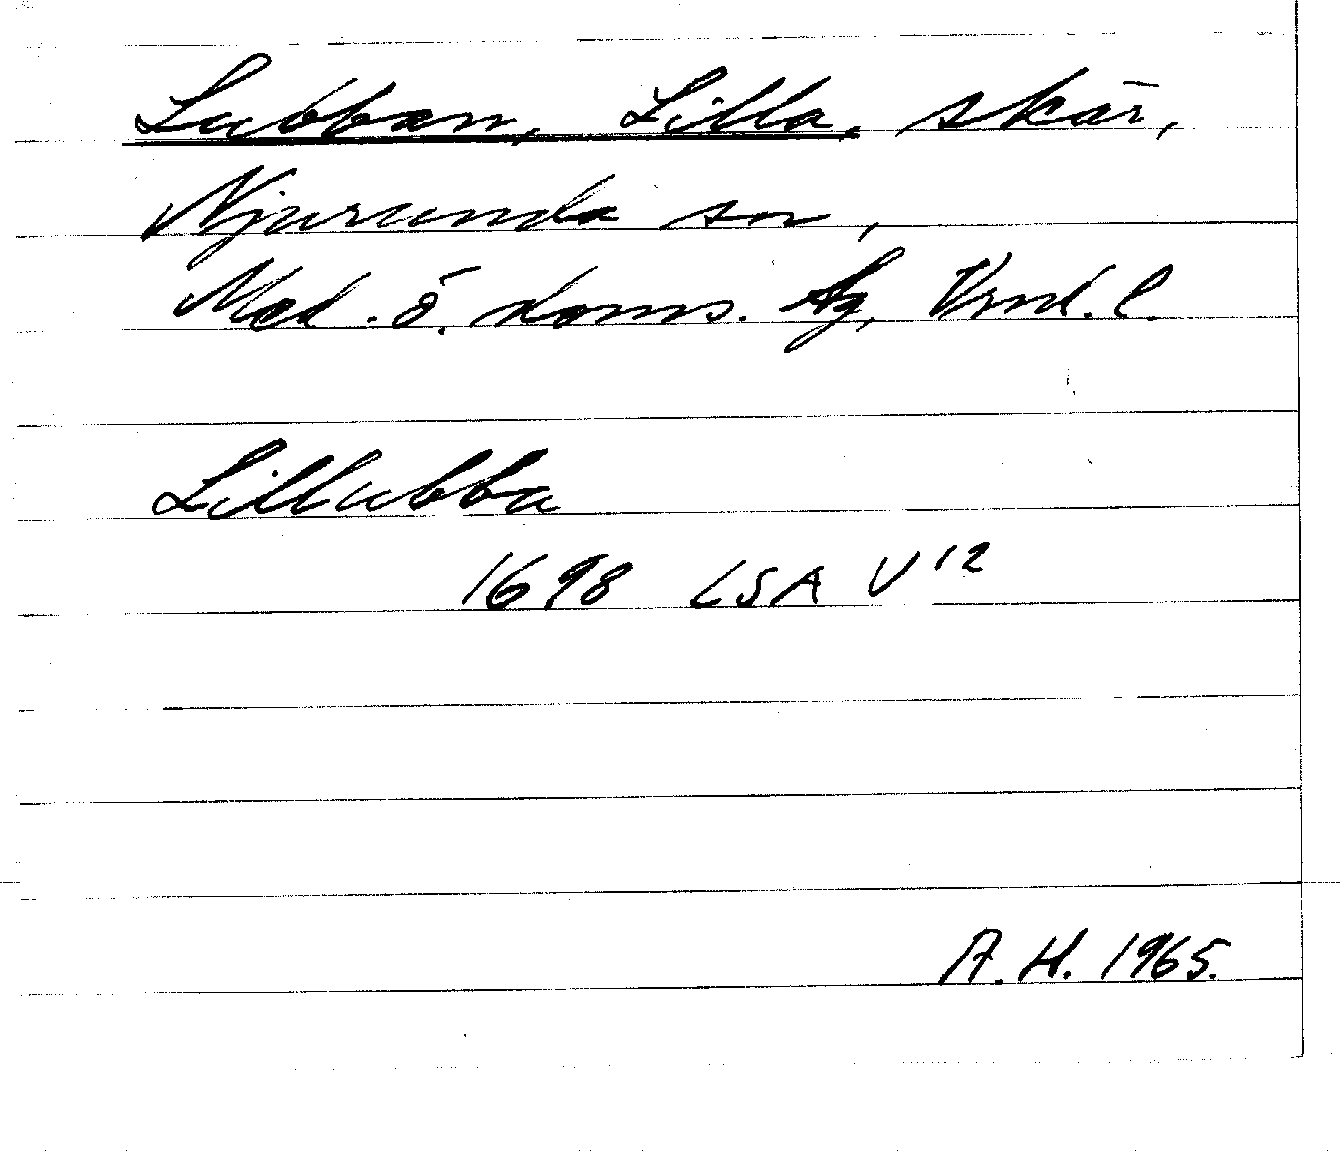 Lubben, Lilla, skär,
Njurunda sn,
Med. ö. doms. Ag, Vrnl. l.
Lillubba
1698 LSA V 12
A. H. 1965.